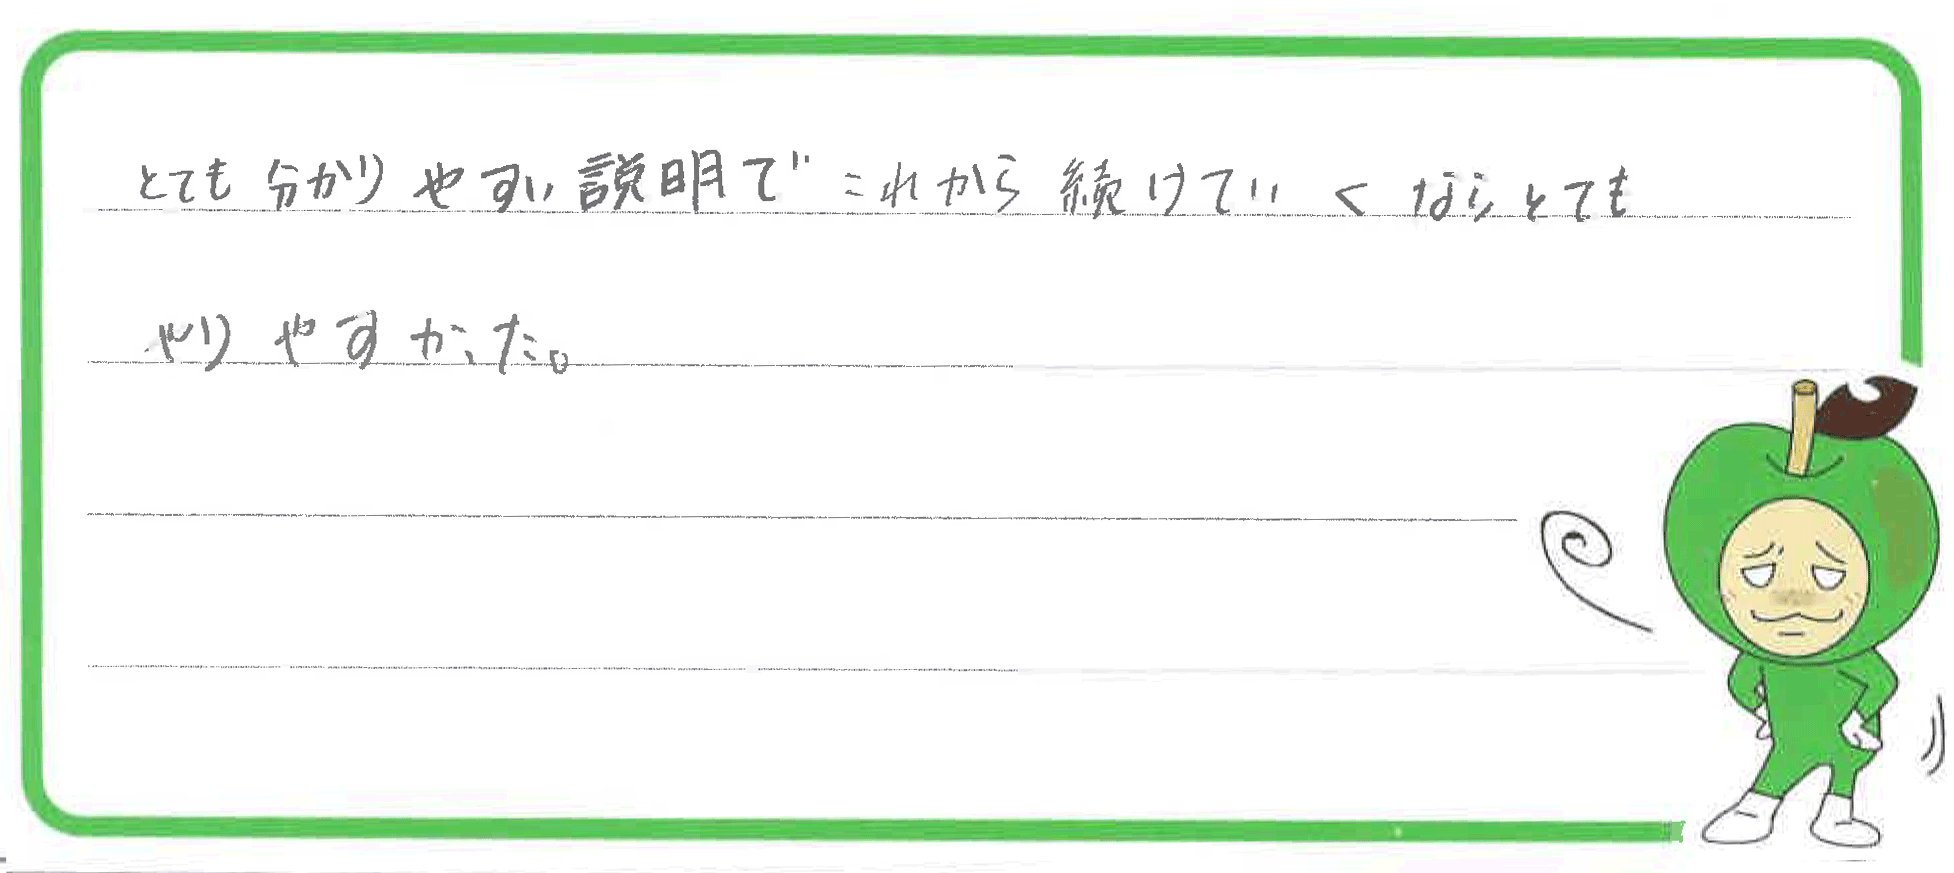 とても分かりやすい説明でこれから続けていくならとても
やりやすかった。